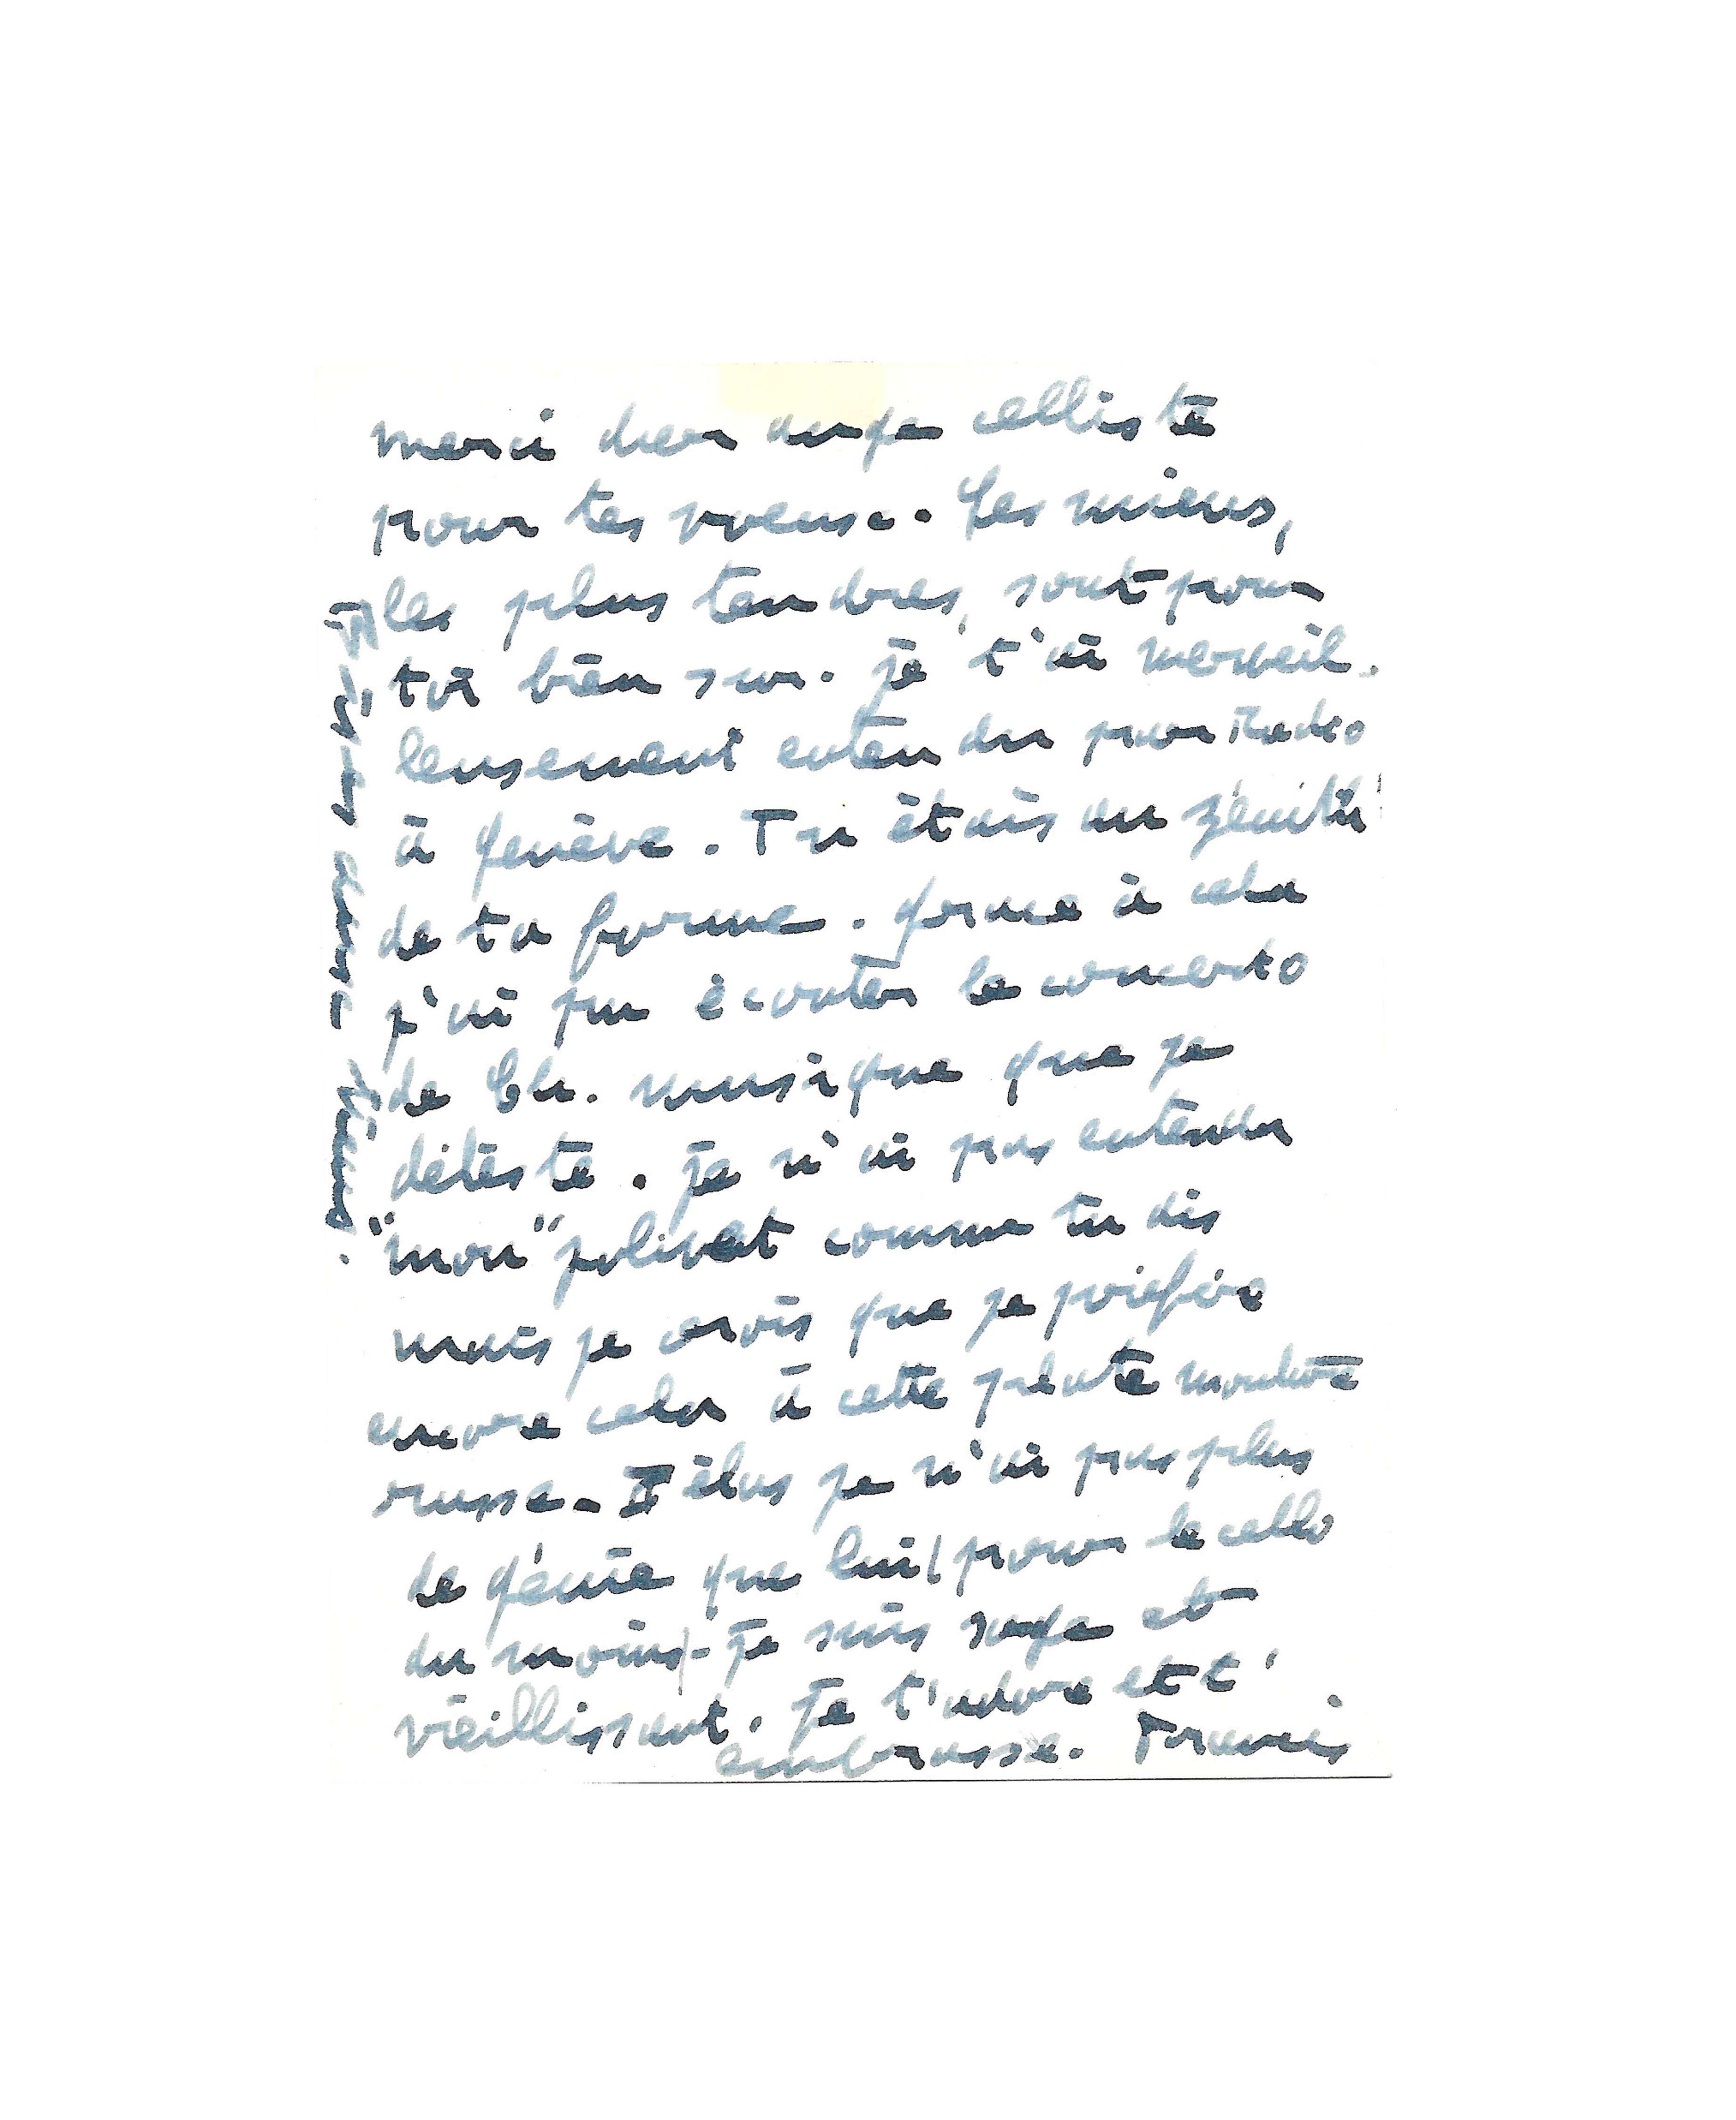 merci cher ange celliste
pour tes vœux. Les miens,
les plus tendres, sont pour
toi bien sur. Je t'ai merveil-
leusement entendu par Radio
à genève. Tu étais au zénith
de ta forme. grace à cela
j'ai pu écouter le concerto
de musique que je
déteste. Je n'ai pas entendu
"mon" comme tu dis
mais je crois que je préfère
encore cela à cette
russe - Hélas je n'ai pas plus
de génie que lui (pour le cello
du moins) - Je suis sage et
vieillissant. Je t'adore et t'
embrasse. Francis